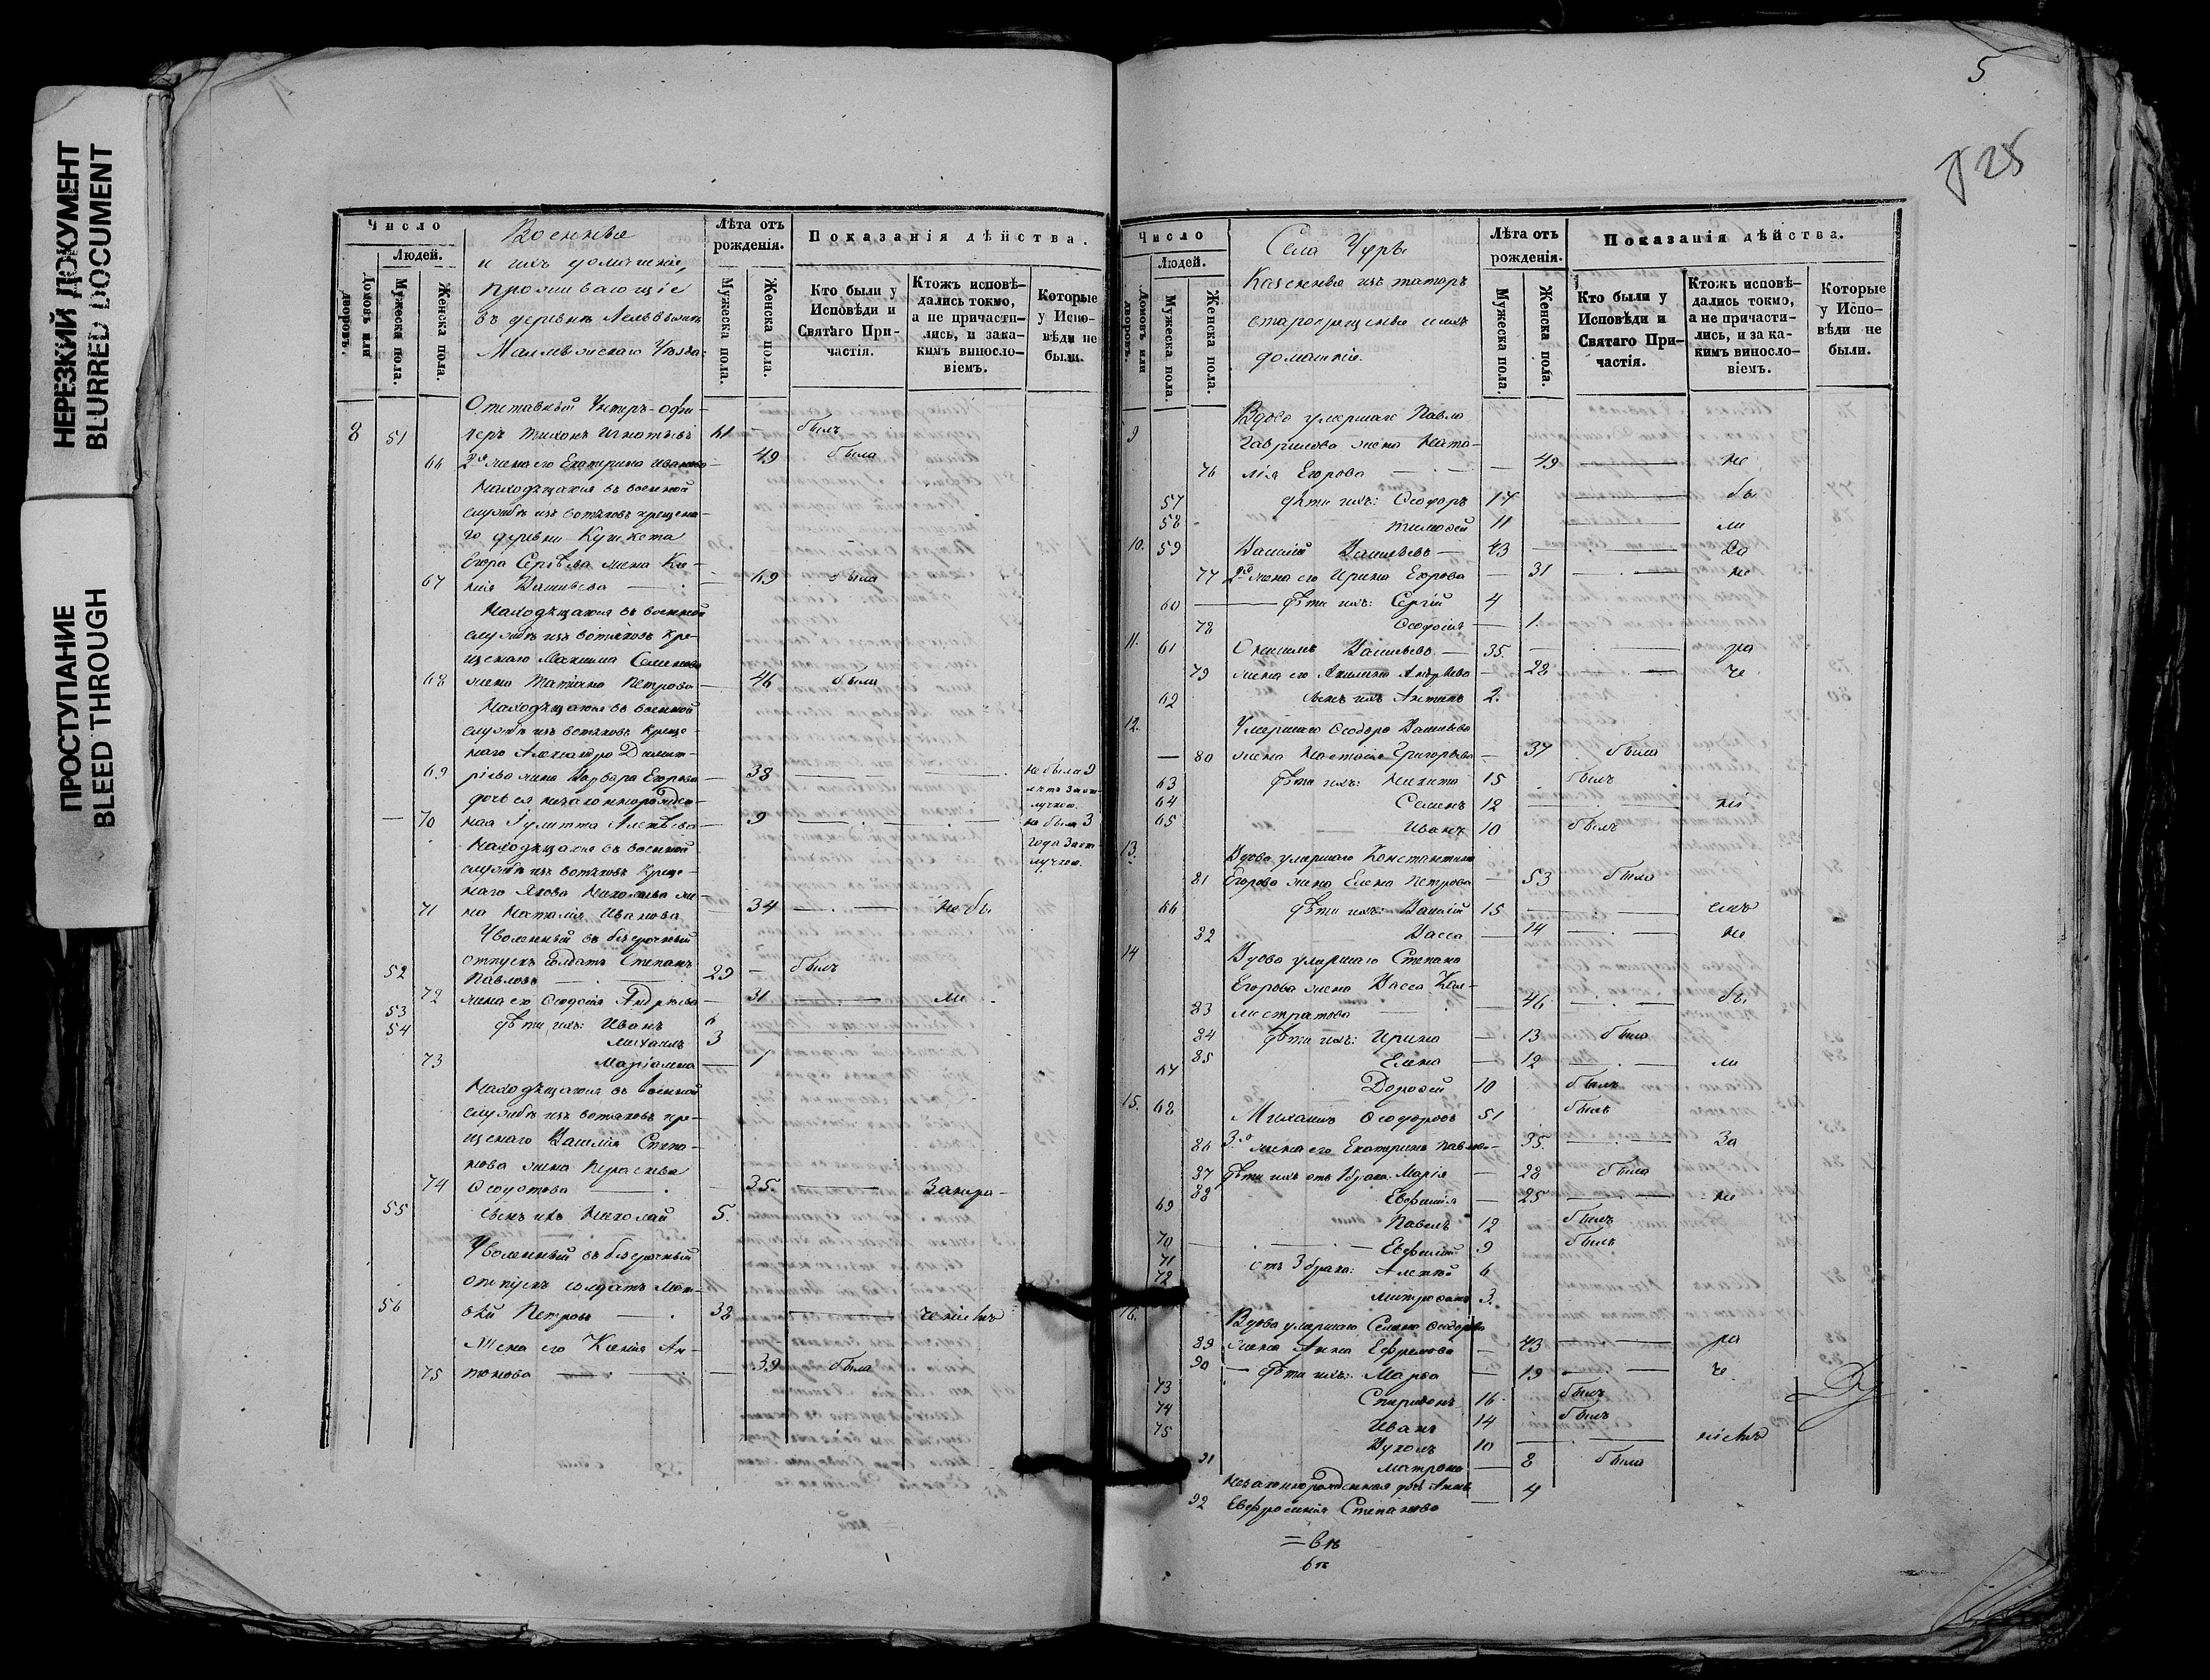 НЕРЕЗКИЙ ДОКУМЕНТ
BLURRED DOCUMENT
ПРОСТУПАНИЕ
BLEED THROUGH
Число
Людей.
Домовъ или дворовъ.
Мужеска пола.
Женска пола.
Военные
и ихъ домашніе,
проживающіе
въ деревнѣ
Малмыжскаго Уѣзда:
Лѣта отъ рожденія.
Мужеска пола.
Женска пола.
Показанія дѣйства.
Кто были у Исповѣди и Святаго Причастія.
Ктожъ исповѣдались токмо, а не причастились, и за какимъ винословіемъ.
Которые у Исповѣди не были.
Отставный Унтеръ-офи-
8 51 церъ Тихонъ Игнатьевъ 61 — былъ
66 2я жена его Екатерина Иванова — 49 была
Находящагося въ военной
службѣ изъ вотяковъ крещена-
го деревни Кушкета
Сергѣева жена Ксе-
67 нія Васильева — 69 была
Находящагося въ военной
службѣ изъ вотяковъ кре-
щенаго Максима Семенова
68 жена Татіана Петрова — 46 была
Находящагося въ военной
службѣ изъ вотяковъ креще-
наго Александра Димит-
69 ріева жена Варвара Егорова — 38 — не была 9
лѣтъ за от-
лучкою.
дочь ея незаконнорожден-
70 ная Іулитта Алексѣева — 9 — не была 3
года за от
лучкою.
Находящагося въ военной
службѣ изъ вотяковъ креще-
наго Якова Николаева же-
71 на Наталія Иванова — 34 — не бы
Уволенный въ безсрочный
отпускъ солдатъ Степанъ
52 Павловъ — 29 — былъ
72 жена его Ѳеодосія Андреева — 31 — ли
53 дѣти ихъ: Иванъ 6
54 Михаилъ 3
73 Маріамна — 1
Находящагося въ военной
службѣ изъ вотяковъ кре-
щенаго Василія Степа-
нова жена Параскева
74 Ѳедотова — 35. —
55 сынъ ихъ Николай 5.
Уволенный въ безсрочный
отпускъ солдатъ Моѵ-
56 сѣй Петровъ — 38
Жена его Ксенія Ан-
75 тонова — 39 была
5
Число
Людей.
Домовъ или дворовъ.
Мужеска пола.
Женска пола.
Села Чуры
Казенные изъ татаръ
старокрещеные и ихъ
домашніе.
Лѣта отъ рожденія.
Мужеска пола.
Женска пола.
Показанія дѣйства.
Кто были у Исповѣди и Святаго Причастія.
Ктожъ исповѣдались токмо, а не причастились, и за какимъ винословіемъ.
Которые у Исповѣди не были.
Вдова умершаго Павла
9 Гаврилова жена Ната-
76 лія Егорова — 49 — не
57 дѣти ихъ: Ѳеодоръ 17 — бы
58 Тимоѳей 11 ли
10. 59 Василій Васильевъ — 43 —
77 2я жена его Ирина Егорова — 31 — не
60 — дѣти ихъ: Сергій 4
78 Ѳеодосія — 1.
11. 61 Онисимъ Васильевъ — 35. — ра
79 жена его Акилина Андреева — 28 — че
62 сынъ ихъ Антипъ 2.
12. Умершаго Ѳеодора Васильева
— 80 жена Настасія Григорьева — 37 была
63 дѣти ихъ: Никита 15 былъ
64 Семенъ 12 —
65 Иванъ 10 былъ
13. Вдова умершаго Константина
81 Егорова жена Елена Петрова — 53 была
66 дѣти ихъ: Василій 15 —
82 Васса — 14 — не
14 Вдова умершаго Степана
Егорова жена Васса Кал-
83 листратова — 46 — бы
84 дѣти ихъ: Ирина — 13 была
85 Елена — 12 — ли
67 Дороѳей 10 былъ
15. 68 Михаилъ Ѳеодоровъ 51 былъ
86 3я жена его Екатерина Павлова — 35. — За
87 дѣти ихъ отъ 1 брака: Марія — 28 была
88 Евфимія — 25 — не
69 Павелъ 12 былъ
70 — Евфимій 9 былъ
71 отъ 3 брака: Алексѣй 6
72 Митрофанъ 3.
16. Вдова умершаго Семена Ѳеодорова
89 жена Анна Ефремова — 43 — ра
90 — дѣти ихъ: Марѳа — 19 — че
73 Спиридонъ 16 былъ
74 Иванъ 14 былъ
75 Вуколъ 10 —
91 Матрона — 8 была
Незаконнорожденная дочь Анны
92 Евфросинія Степанова — 4